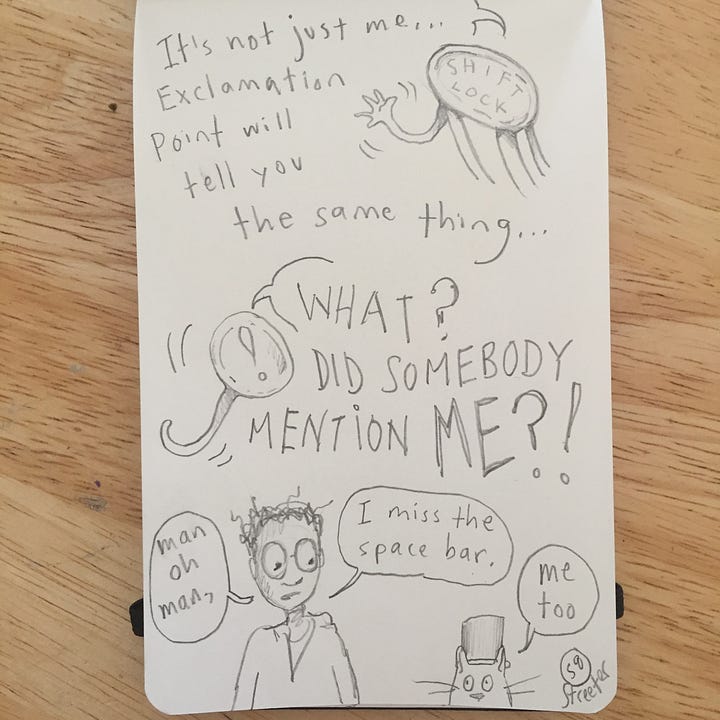 It's not just me...
Exclamation
Point will
tell you
the same thing...
SHIFT
LOCK
!
WHAT?
DID SOMEBODY
MENTION ME?!
man
oh
man,
I miss the
space bar.
me
too
59
Streeter